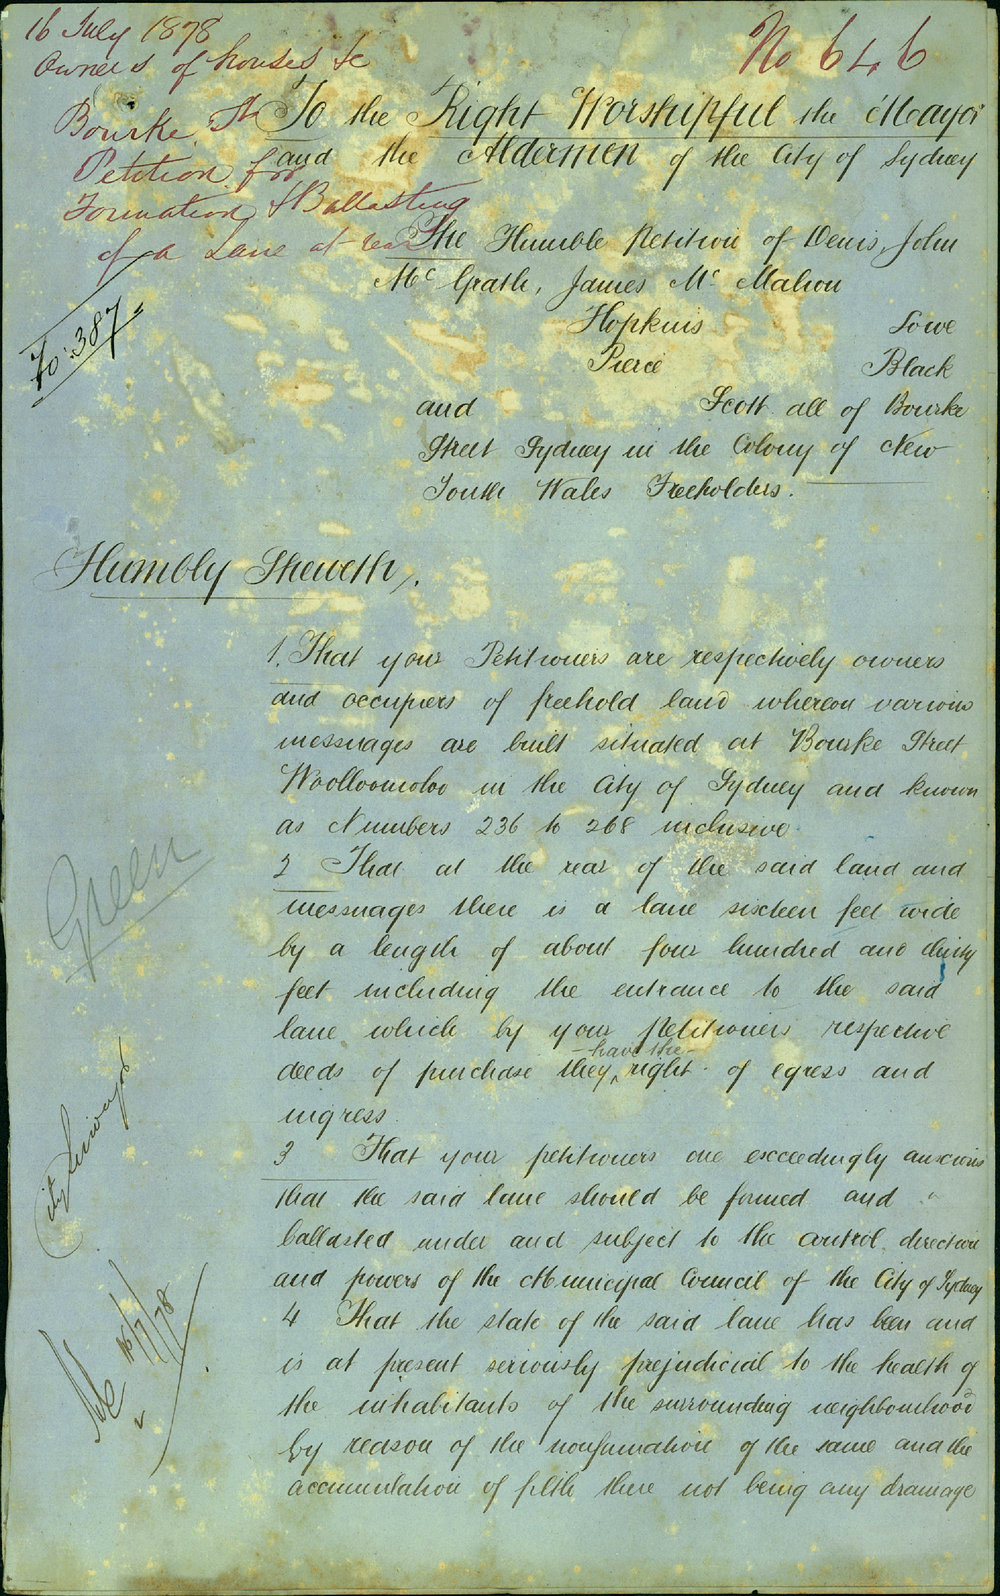 16 July 1878
Owners of houses &c
Bourke St
Petition for
Formation & Ballasting
of a Lane at rear
No 646
Fo: 387
To the Right Worshipful the Mayor
and the Aldermen of the City of Sydney
The Humble Petition of Denis, John
McGrath, James Mc Mahon
Hopkins Lowe
Pierce Black
and Scott all of Bourke
Street Sydney in the Colony of New
South Wales Freeholders.
Humbly Sheweth,
1. That your Petitioners are respectively owners
and occupiers of freehold land whereon various
messuages are built situated at Bourke Street
Woolloomoloo in the City of Sydney and known
as Numbers 236 to 268 inclusive
2 That at the rear of the said land and
messuages there is a lane sixteen feet wide
by a length of about four hundred and thirty
feet including the entrance to the said
lane which by your Petitioners respective
deeds of purchase they have the right of egress and
ingress
3 That your petitioners are exceedingly anxious
that the said lane should be formed and
ballasted under and subject to the control direction
and powers of the Municipal Council of the City of Sydney
4 That the state of the said lane has been and
is at present seriously prejudicial to the health of
the inhabitants of the surrounding neighbourhood
by reason of the nonformation of the same and the
accumulation of filth there not being any drainage
Green
City Surveyor
16/7/78